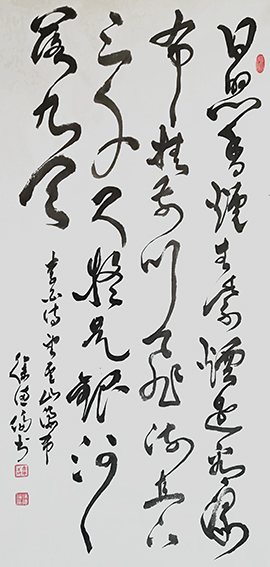 日照香炉生紫烟遥看瀑
布挂前川飞流直下
三千尺疑是银河
落九天
李白诗望庐山瀑布
徐
书